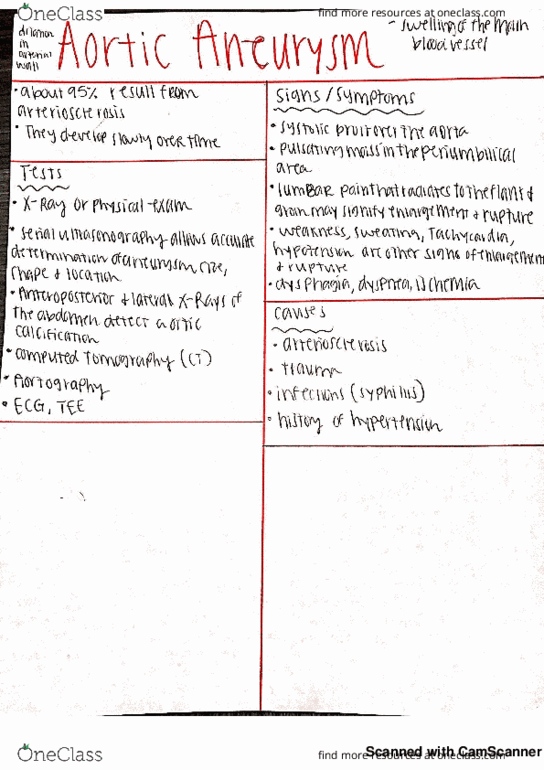 OneClass
find more resources at oneclass.com
dilation
in
arterial
wall
Aortic Aneurysm
- swelling of the main
blood vessel
• about 95% result from
arteriosclerosis
• They develop slowly over time
Tests
• X-Ray or physical exam
• serial ultrasonography allows accurate
determination of aneurysm size,
shape & location
• Anteroposterior & lateral X-Rays of
the abdomen detect aortic
calcification
• computed Tomography (CT)
• Aortography
• ECG, TEE
Signs/Symptoms
• systolic bruit over the aorta
• pulsating mass in the periumbilical
area
• lumbar pain that radiates to the flank &
groin may signify enlargement & rupture
• weakness, sweating, Tachycardia,
hypotension are other signs of enlargement
& rupture
• dysphagia, dyspnea, ischemia
Causes
• arteriosclerosis
• trauma
• infections (syphilis)
• history of hypertension
OneClass
find more resources at oneclass.com
Scanned with CamScanner